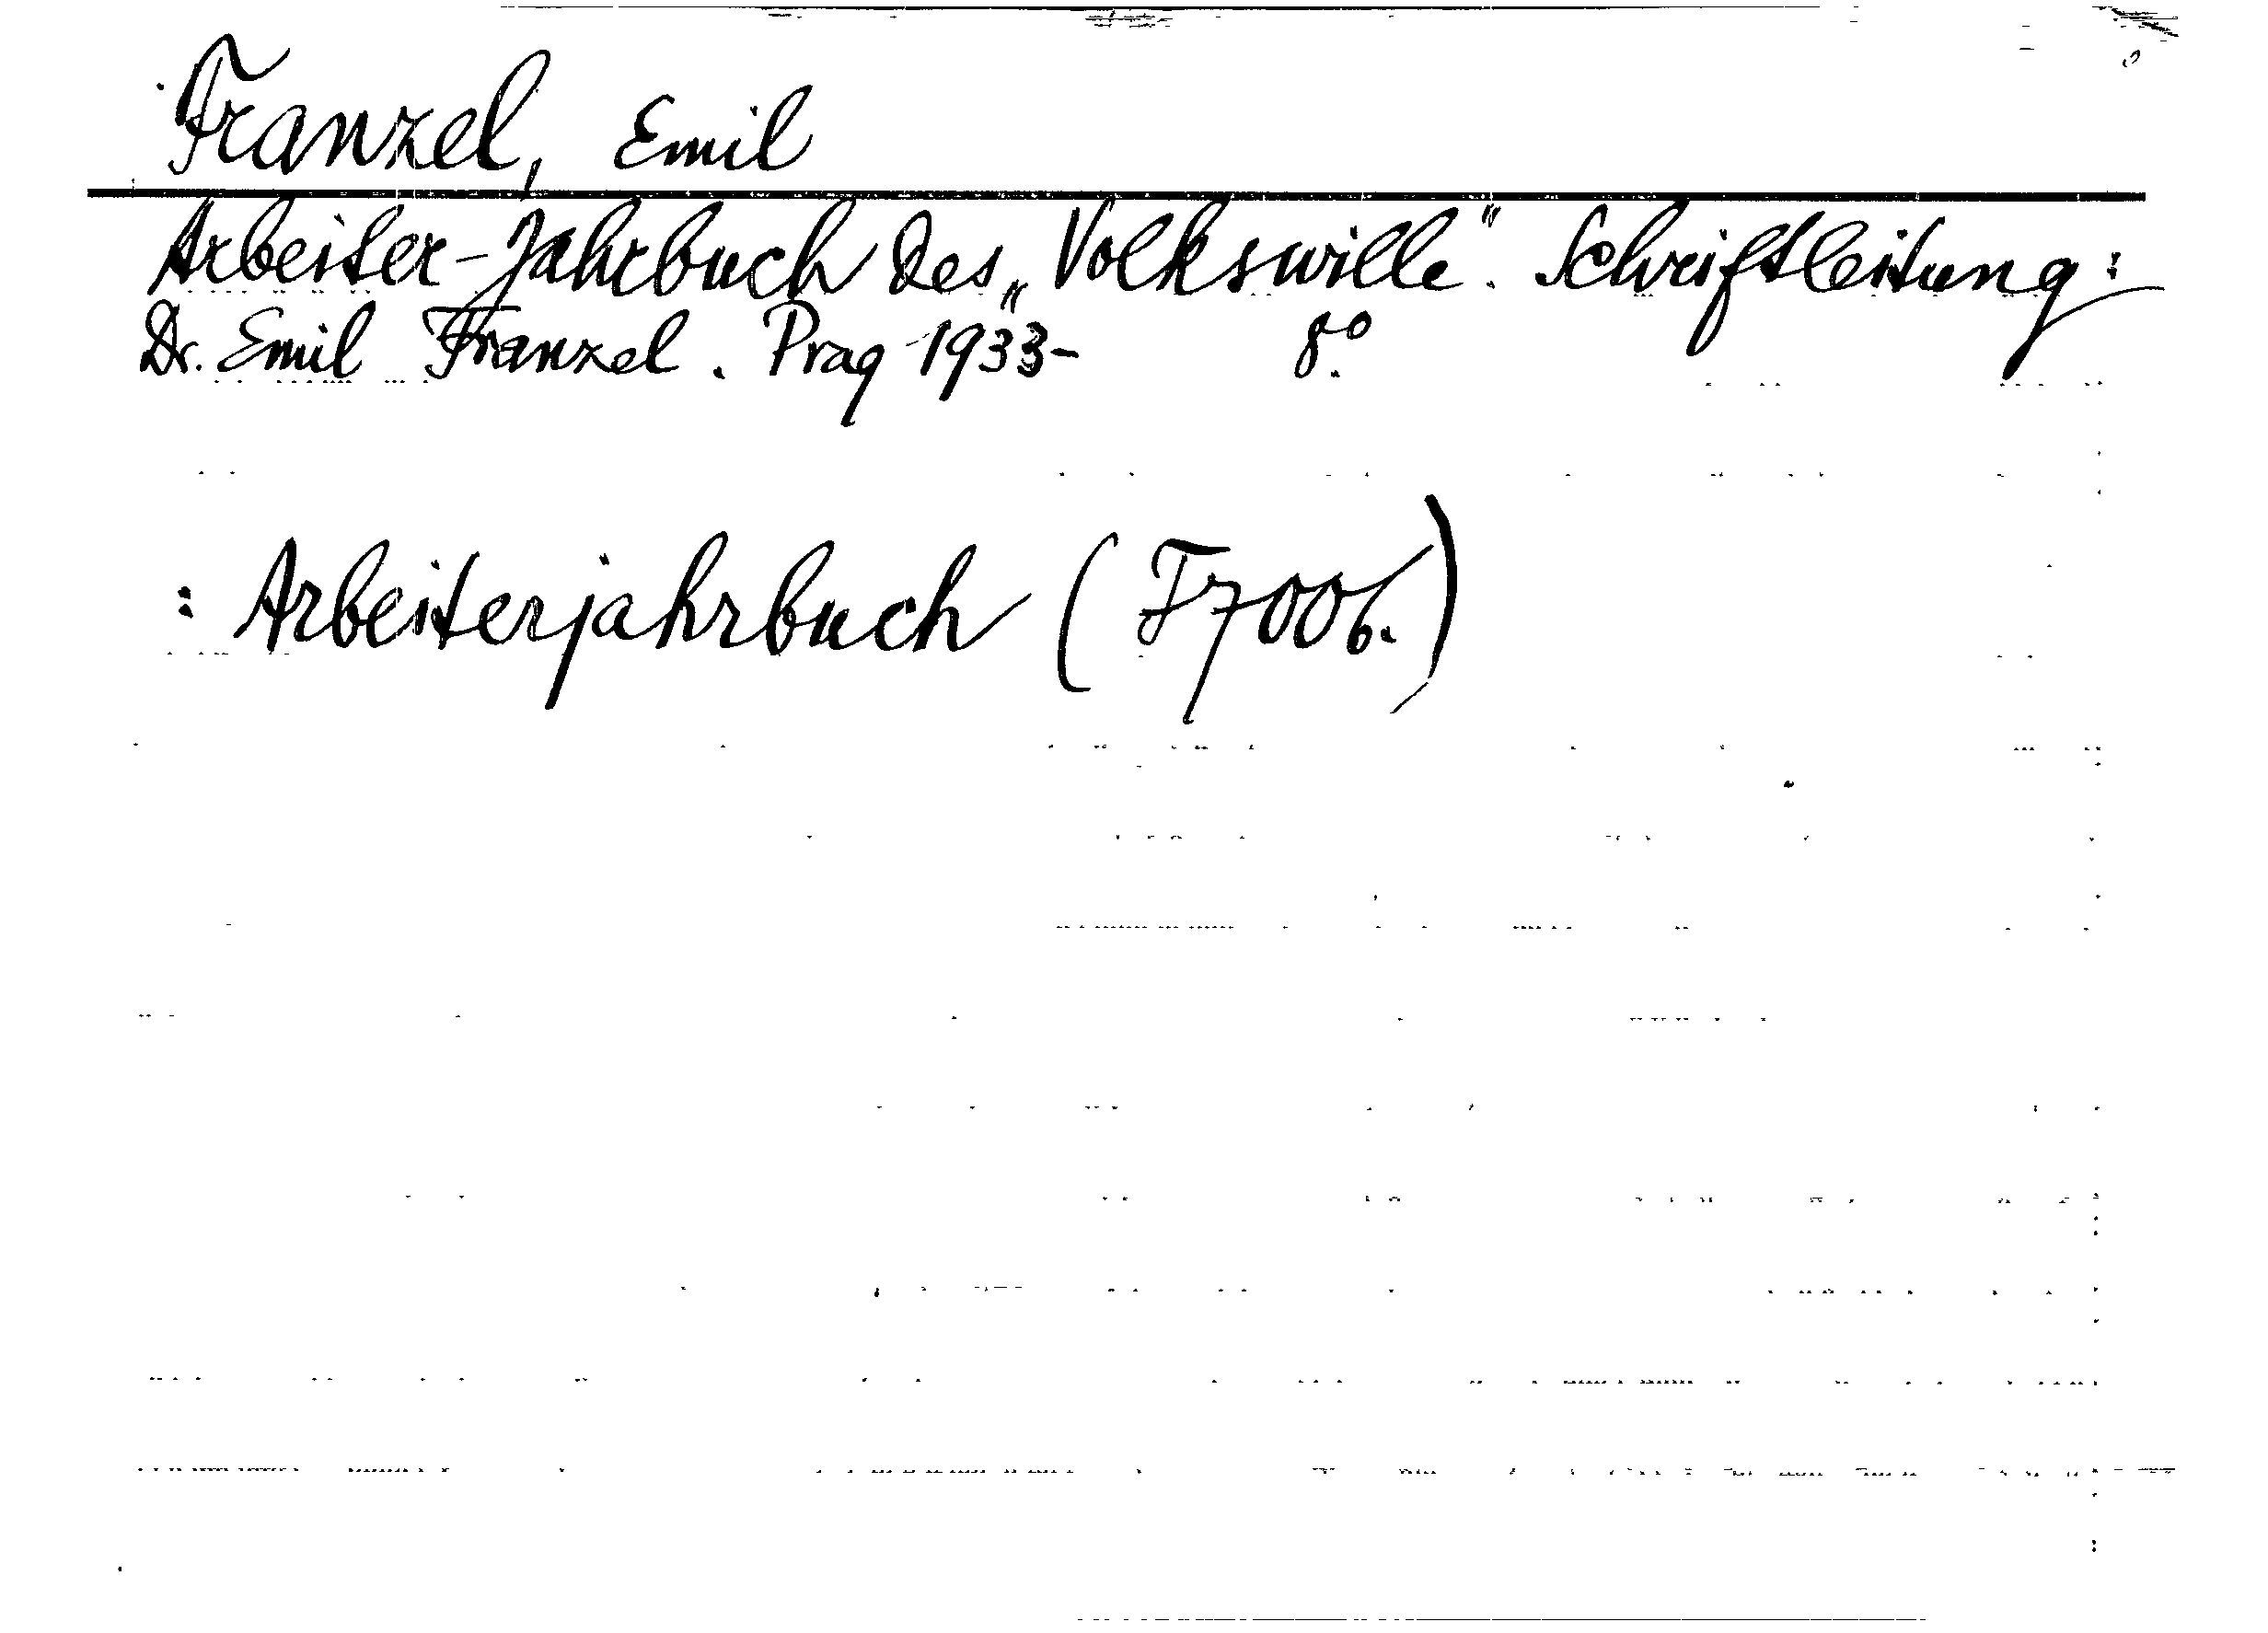 Franzel, Emil
Arbeiter-Jahrbuch des „Volkswille“. Schriftleitung:
Dr. Emil Franzel. Prag 1933- 8°.
: Arbeiterjahrbuch (F7006.)